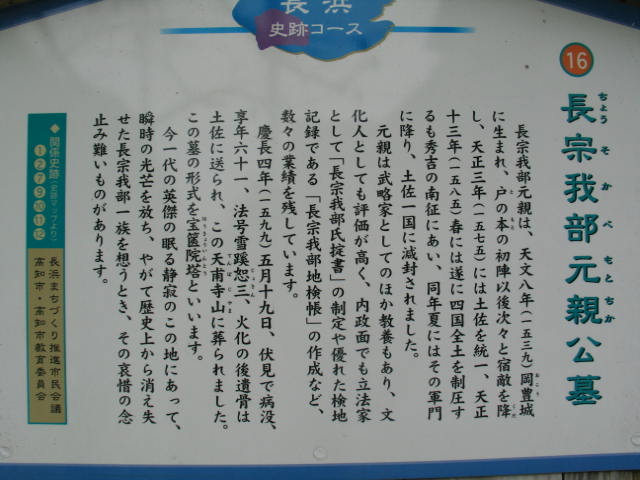 長浜
史跡コース
16
長宗我部元親公墓
ちょうそかべもとちか
長宗我部元親は、天文八年(一五三九)岡豊城
おこう
に生まれ、戸の本の初陣以後次々と宿敵を降
と もと
くだ
し、天正三年(一五七五)には土佐を統一、天正
十三年(一五八五)春には遂に四国全土を制圧す
るも秀吉の南征にあい、同年夏にはその軍門
に降り、土佐一国に減封されました。
元親は武略家としてのほか教養もあり、文
化人としても評価が高く、内政面でも立法家
として「長宗我部氏掟書」の制定や優れた検地
記録である「長宗我部地検帳」の作成など、
数々の業績を残しています。
慶長四年(一五九九)五月十九日、伏見で病没、
享年六十一、法号雪蹊恕三、火化の後遺骨は
じょさん
土佐に送られ、この天甫寺山に葬られました。
てんぽじやま
この墓の形式を宝篋院塔といいます。
ほうきょういんとう
今一代の英傑の眠る静寂のこの地にあって、
瞬時の光芒を放ち、やがて歴史上から消え失
せた長宗我部一族を想うとき、その哀惜の念
止み難いものがあります。
◆関係史跡(史跡マップより)
①②⑦⑨⑩⑪⑫
長浜まちづくり推進市民会議
高知市・高知市教育委員会